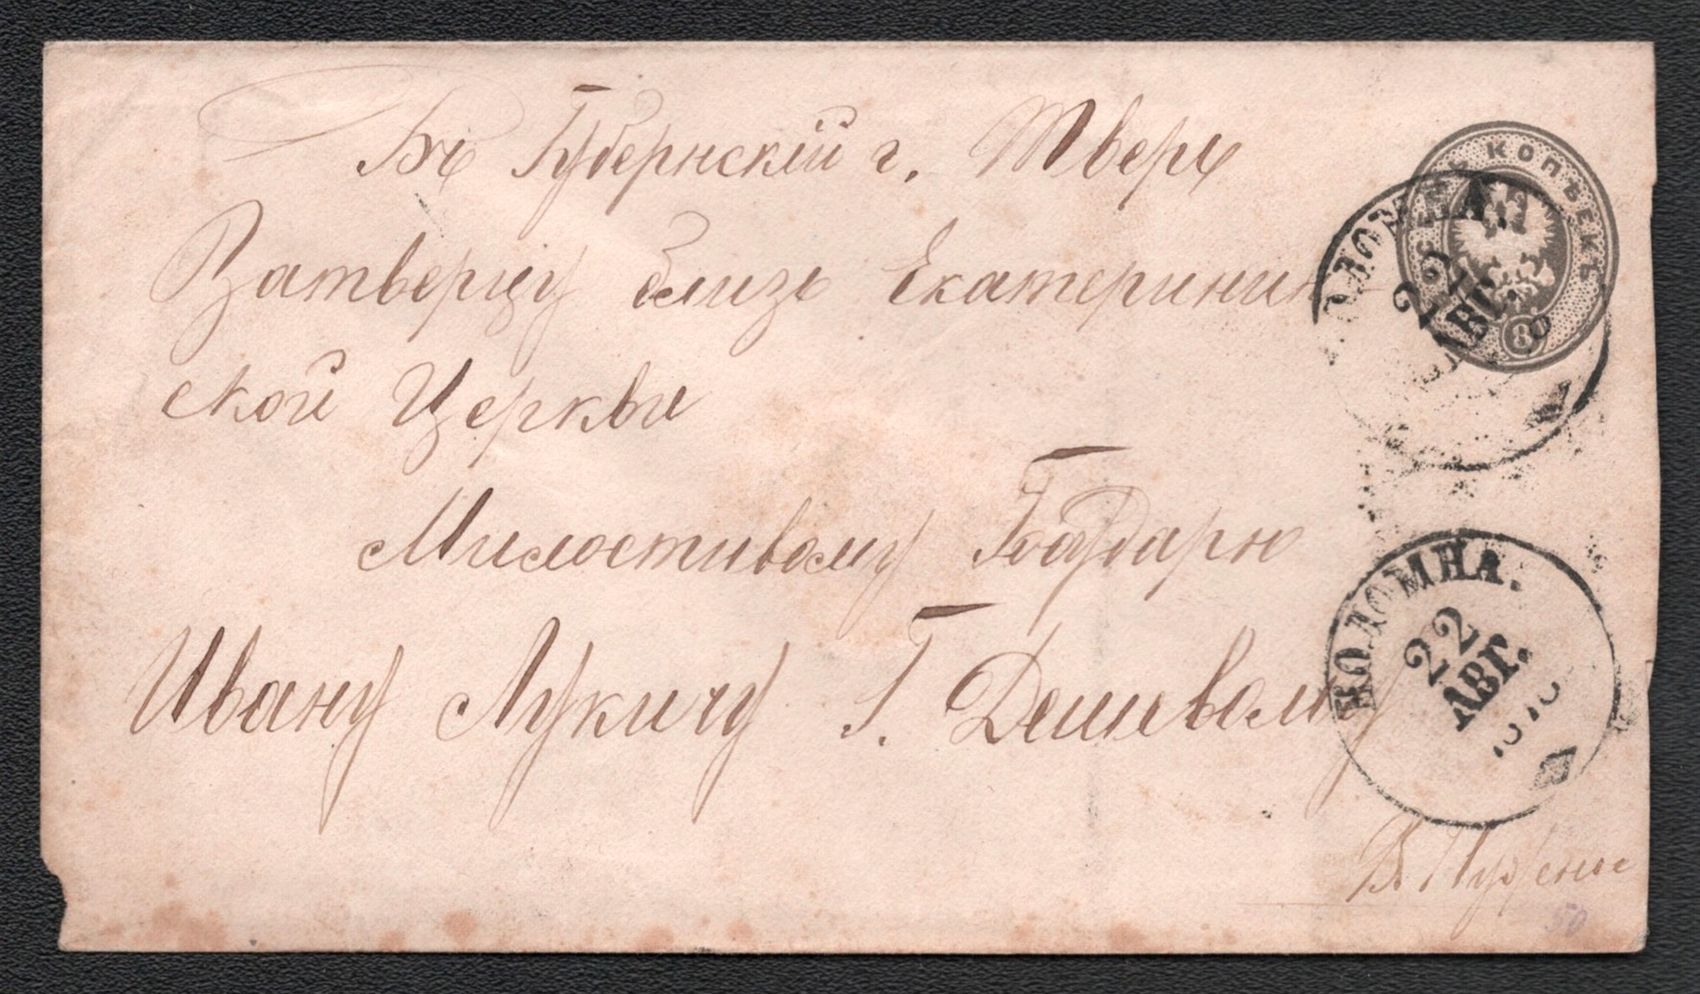 Въ Губернскій г. Тверь
Затверцу близь Екатеринин-
ской Церкви
Милостивому Государю
Ивану Лукичу Г. Дешевому
КОПѢЕКЪ
8
КОЛОМНА.
22
АВГ.
КОЛОМНА.
22
АВГ.
50